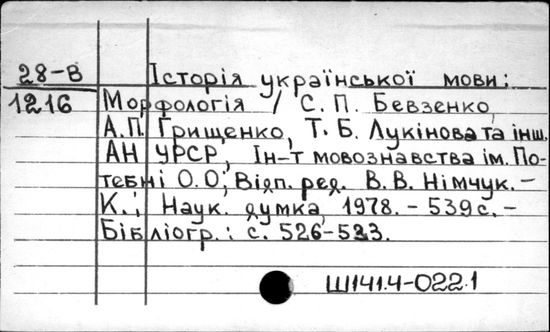 28-В Історія української мови:
1216 Морфологія / С. П. Бевзенко,
А.П. Грищенко, Т. Б. Лукінова та інш.
АН УРСР, Ін-т мовознавства ім. По-
тебні О.О; Відп. ред. В. В. Німчук. -
К.: Наук. думка, 1978. - 539 с. -
Бібліогр.: с. 526-533.
Ш141.4-022.1